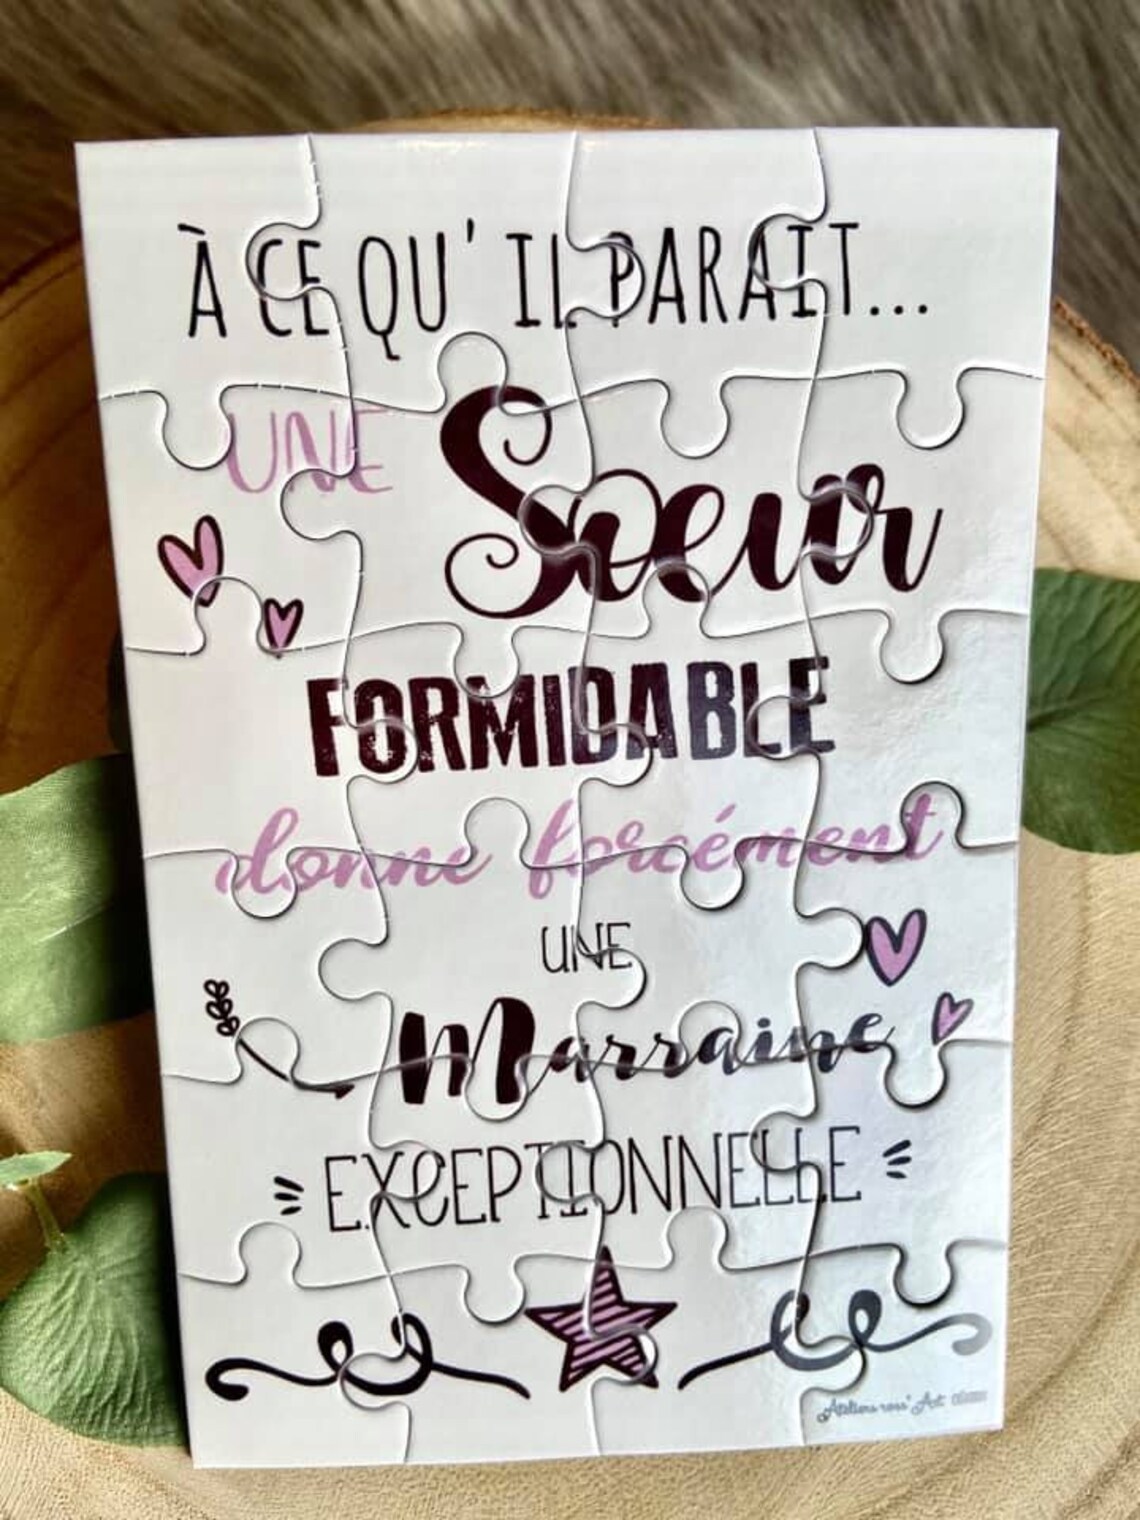 À CE QU'IL PARAIT...
UNE Sœur
FORMIDABLE
donne forcément
UNE
Marraine
EXCEPTIONNELLE
Ateliers ross'Art